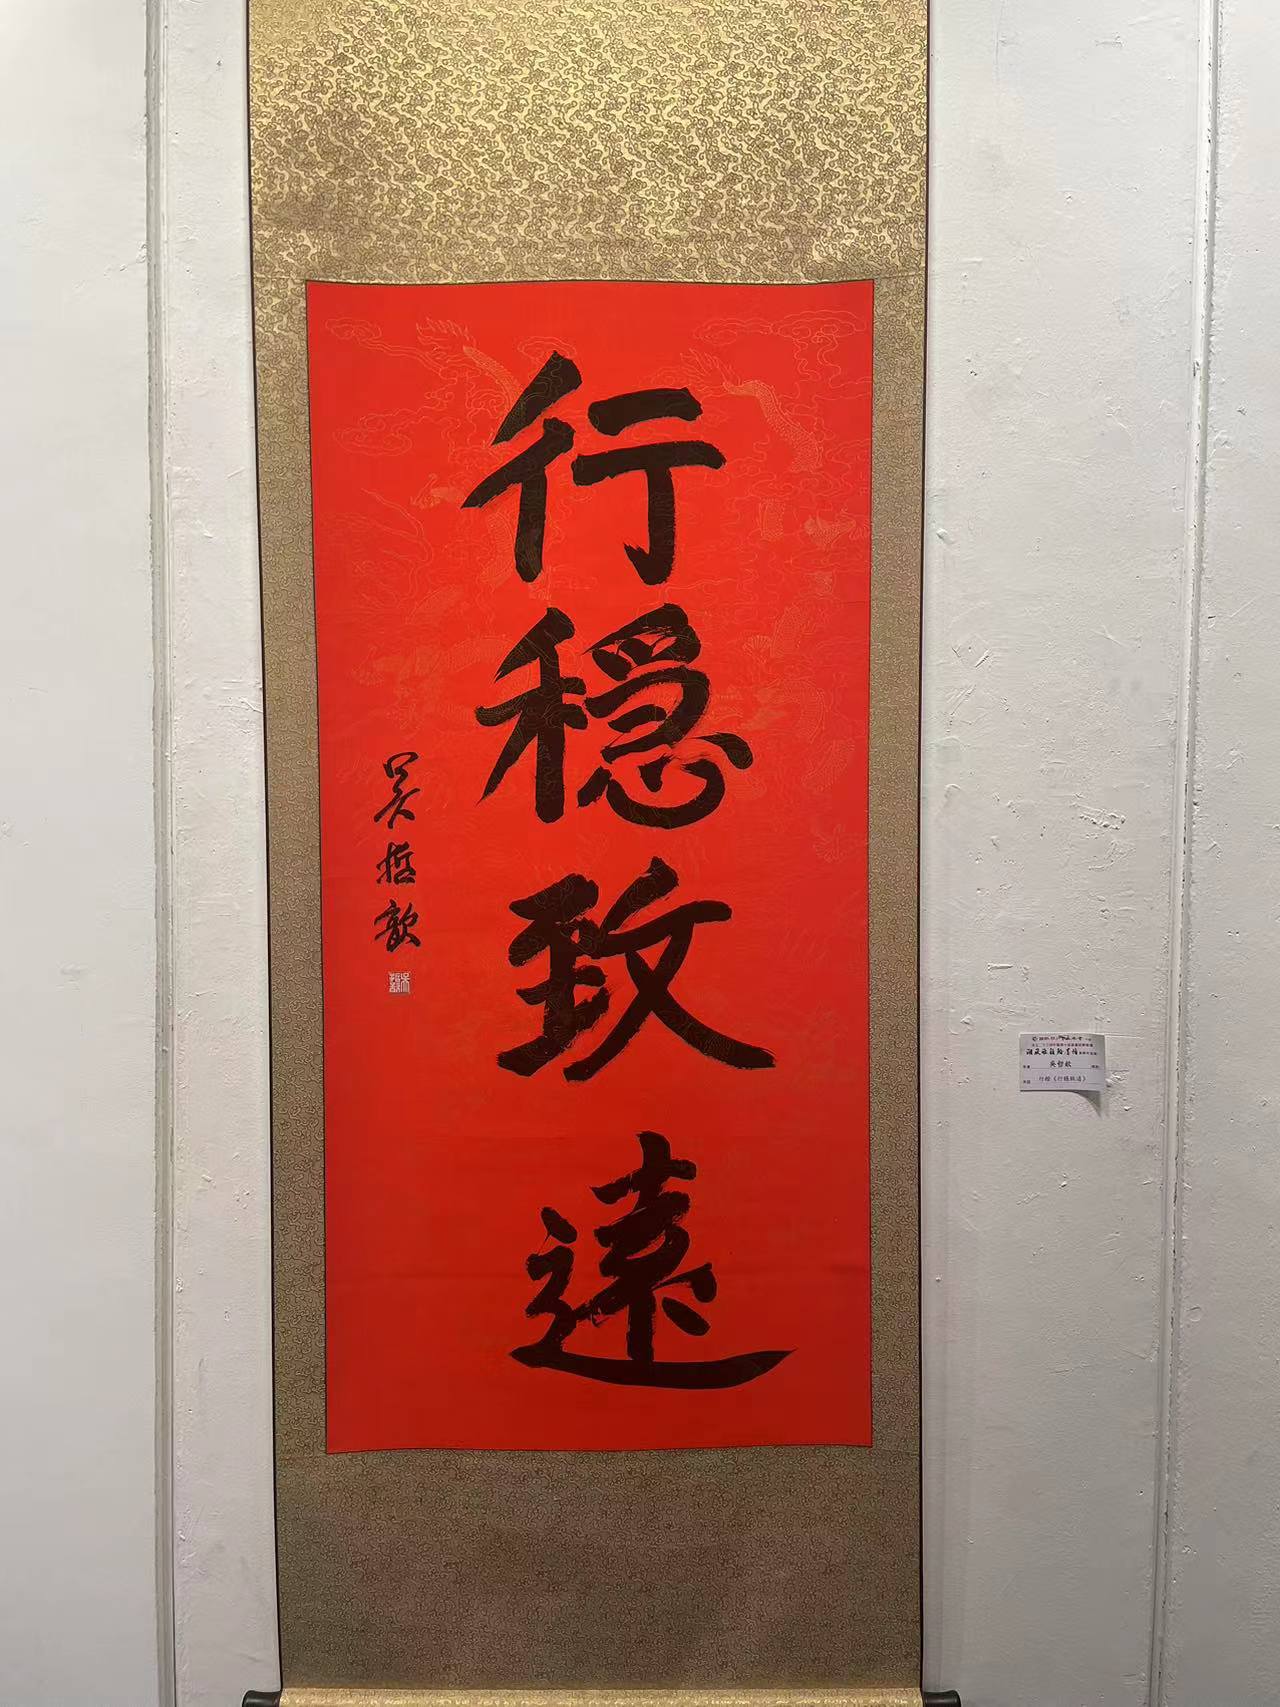 行穩致遠
吴哲歆
吳哲歆
行楷《行穩致遠》